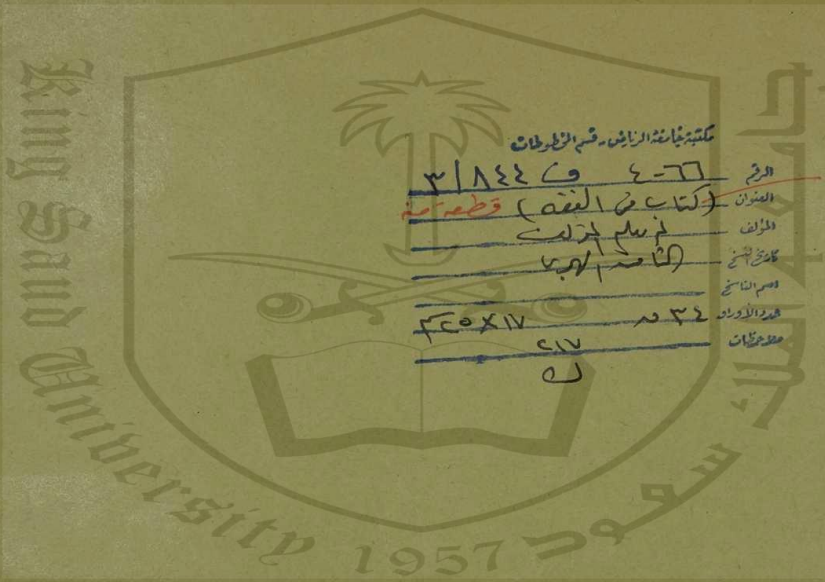 King Saud University
جامعة الملك سعود
1957
مكتبة جامعة الرياض - قسم المخطوطات
الرقم ٤٠٦٦ ف ٨٤٤/٣
العنوان (كتاب في الفقه) قطعة منه
المؤلف لم يعلم المؤلف
تاريخ النسخ الثامن الهجري
اسم الناسخ
عدد الأوراق ٣٤ ق ١٧×٢٥ سم
ملاحظات ٢١٧